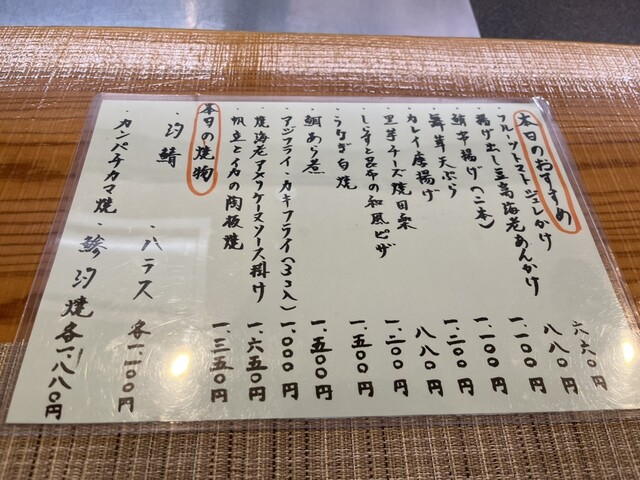 本日のおすすめ
・フルーツトマトジュレかけ 六六〇円
・揚げ出し豆富海老あんかけ 八八〇円
・鯖串揚げ(二本) 一.一〇〇円
・舞茸天ぷら 一.一〇〇円
・カレイ唐揚げ 一.二〇〇円
・里芋チーズ焼田楽 八八〇円
・しらすと昆布の和風ピザ 一.二〇〇円
・うなぎ白焼 一.五〇〇円
・鯛あら煮 一.五〇〇円
・アジフライ・カキフライ(3コ入) 一.〇〇〇円
・焼海老アメリケーヌソース掛け 一.六五〇円
・帆立とイカの陶板焼 一.三五〇円
本日の焼物
・汐鯖 ・ハラス 各一.一〇〇円
・カンパチカマ焼・鯵汐焼 各一.八八〇円